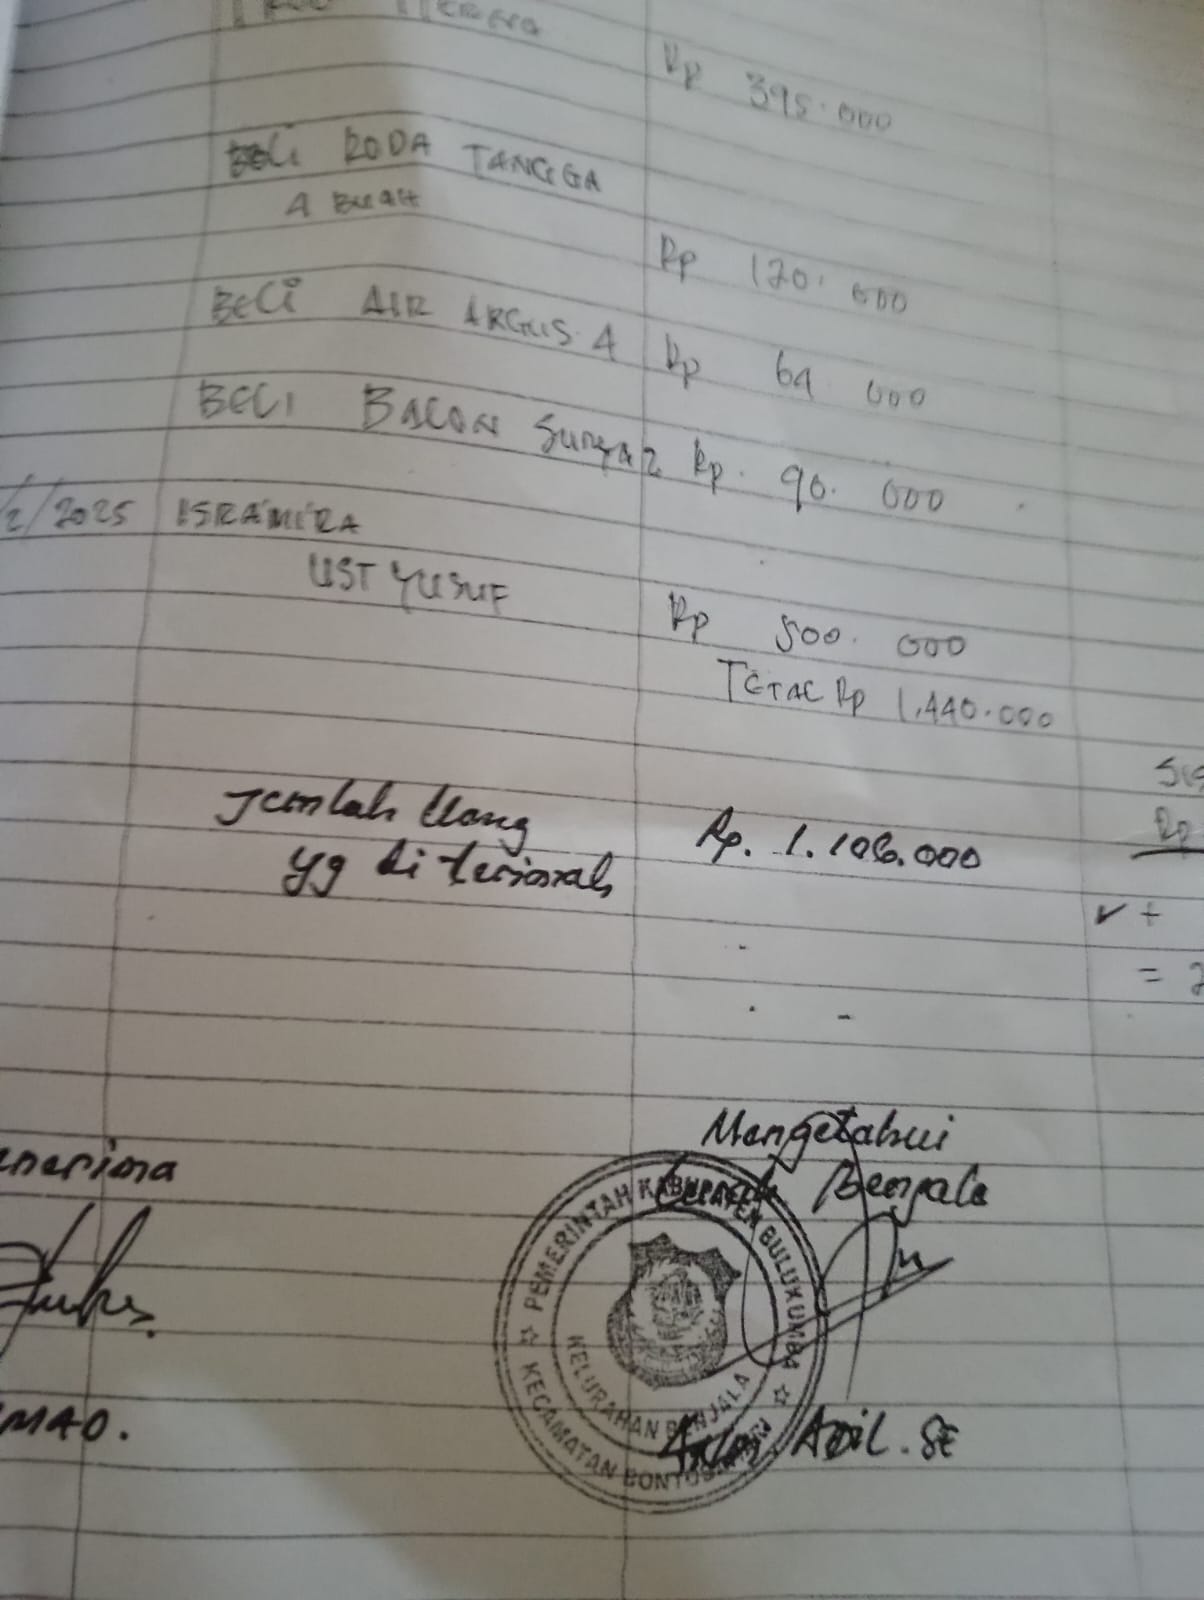 Rp 395.000
BELI RODA TANGGA
4 BUAH
Rp 120.000
BELI AIR ARGUS 4 Rp 64 000
BELI BALON Surya 2 Rp. 90.000
2/2025 ISRA'MI'RA
UST YUSUF
Rp 500.000
TOTAL Rp 1.440.000
SIS
Rp
Jumlah Uang Rp. 1.106.000
yg di terimah
✓ +
= 2
Mengetahui
nerima
Benjala
PEMERINTAH KABUPATEN BULUKUMBA
KELURAHAN BENJALA
KECAMATAN
MAD.
Adil. SE